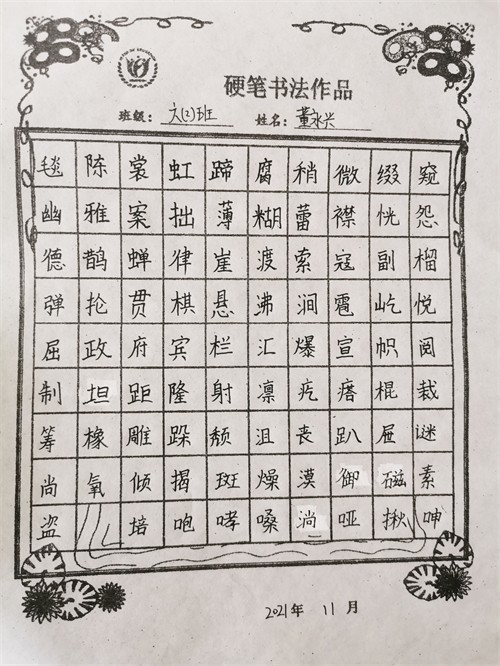 硬笔书法作品
班级：六(2)班 姓名：董永兴
毯 陈 裳 虹 蹄 腐 稍 微 缀 窥
幽 雅 案 拙 薄 糊 蕾 襟 恍 怨
德 鹊 蝉 律 崖 渡 索 寇 副 榴
弹 抡 贯 棋 悬 沸 涧 雹 屹 悦
屈 政 府 宾 栏 汇 爆 宣 帜 阅
制 坦 距 隆 射 凛 疙 瘩 棍 裁
筹 橡 雕 跺 颓 沮 丧 趴 屉 谜
尚 氧 倾 揭 斑 燥 漠 御 磁 素
盗 培 咆 哮 嗓 淌 哑 揪 呻
2021年 11月